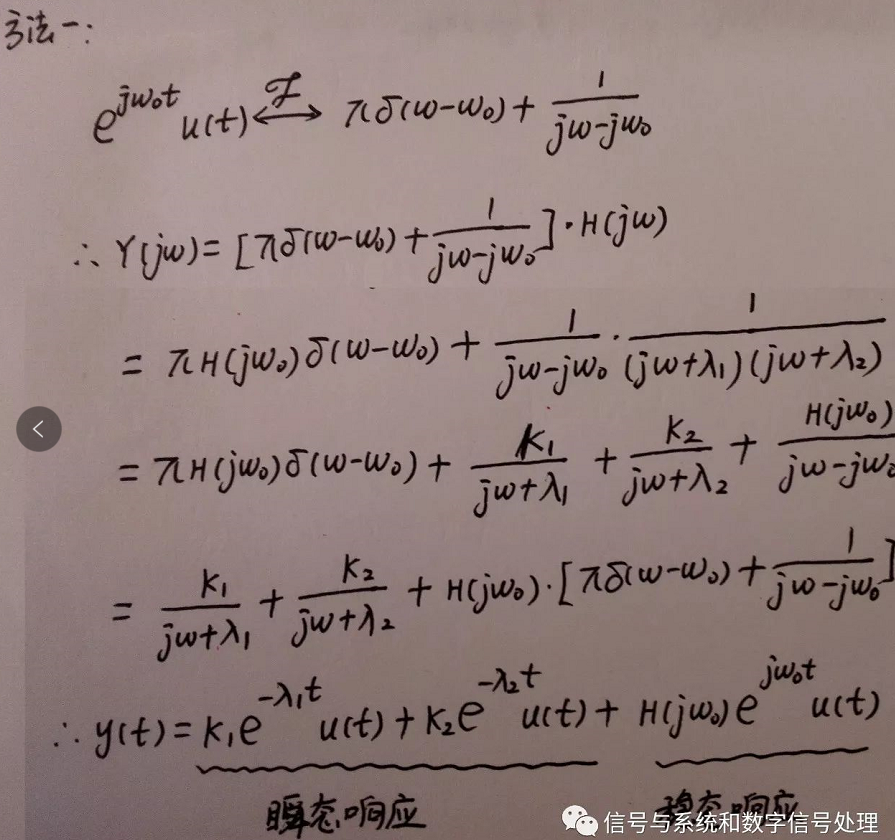 方法一:
e^{jω₀t} u(t) ⟷^{ℱ} πδ(ω-ω₀) + \frac{1}{jω-jω₀}
∴ Y(jω) = [πδ(ω-ω₀) + \frac{1}{jω-jω₀}]·H(jω)
= πH(jω₀)δ(ω-ω₀) + \frac{1}{jω-jω₀}·\frac{1}{(jω+λ₁)(jω+λ₂)}
= πH(jω₀)δ(ω-ω₀) + \frac{K₁}{jω+λ₁} + \frac{K₂}{jω+λ₂} + \frac{H(jω₀)}{jω-jω₀}
= \frac{K₁}{jω+λ₁} + \frac{K₂}{jω+λ₂} + H(jω₀)·[πδ(ω-ω₀) + \frac{1}{jω-jω₀}]
∴ y(t) = K₁e^{-λ₁t} u(t) + K₂e^{-λ₂t} u(t) + H(jω₀)e^{jω₀t} u(t)
瞬态响应 稳态响应
信号与系统和数字信号处理